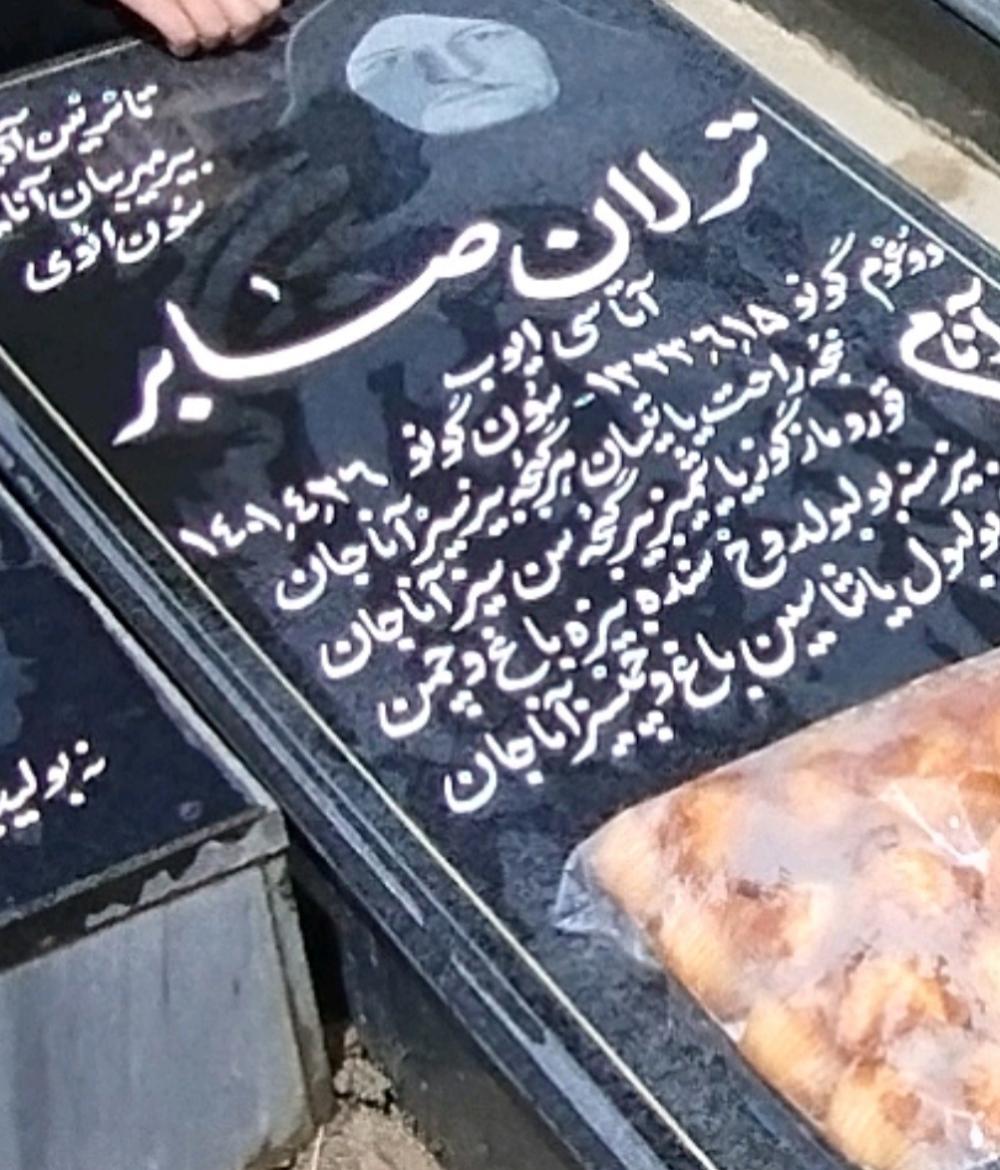 تانرینین
بیرمیربیان آنا
سون ائوی
ترلان صابر
آتا سی ایوب
دوغوم گونو ۱۳۲۳,۶,۱۵ - سون گونو ۱۴۰۱,۴,۲۶
آنام
نجه راحت یاتیبسان هر گئجه بیزسیز آناجان
قوروماز گوز یاشیمیز بیر گئجه سن سیز آناجان
بیزسیز بولبولدوخ سنده بیزه باغ و چمن
بولبول یاشاسین باغ و چمنسیز آناجان
نه بولید